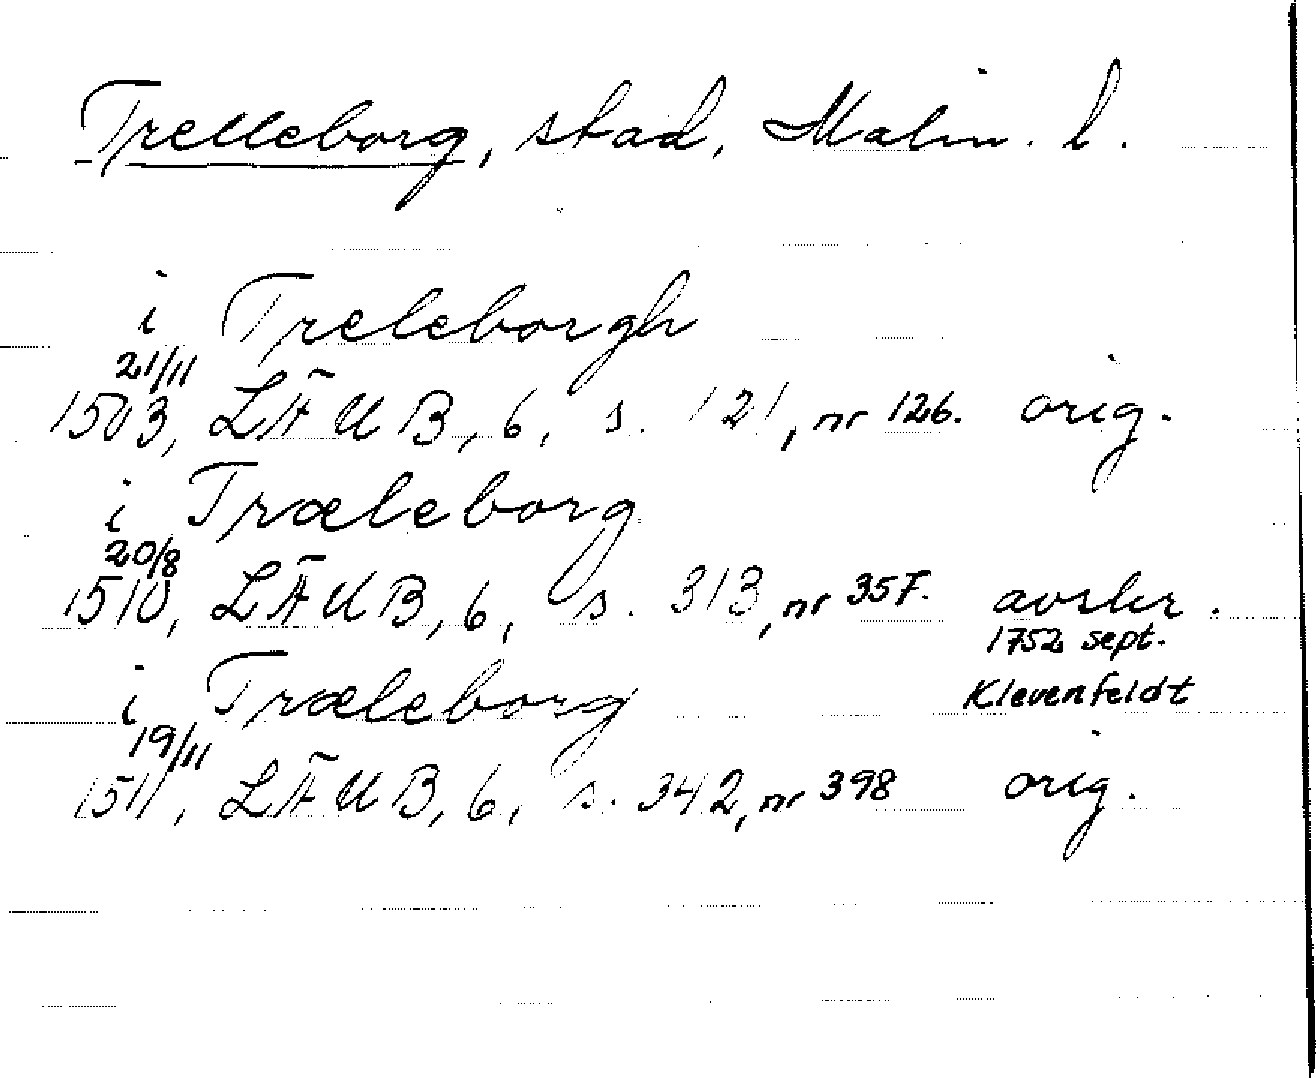 Trelleborg, stad, Malm. l.
i Treleborgh
21/11
1503, LÄUB, 6, s. 121, nr 126. orig.
i Træleborg
20/8
1510, LÄUB, 6, s. 313, nr 357. avskr.
1752 sept.
i Træleborg Klevenfeldt
19/11
1511, LÄUB, 6, s. 342, nr 398 orig.